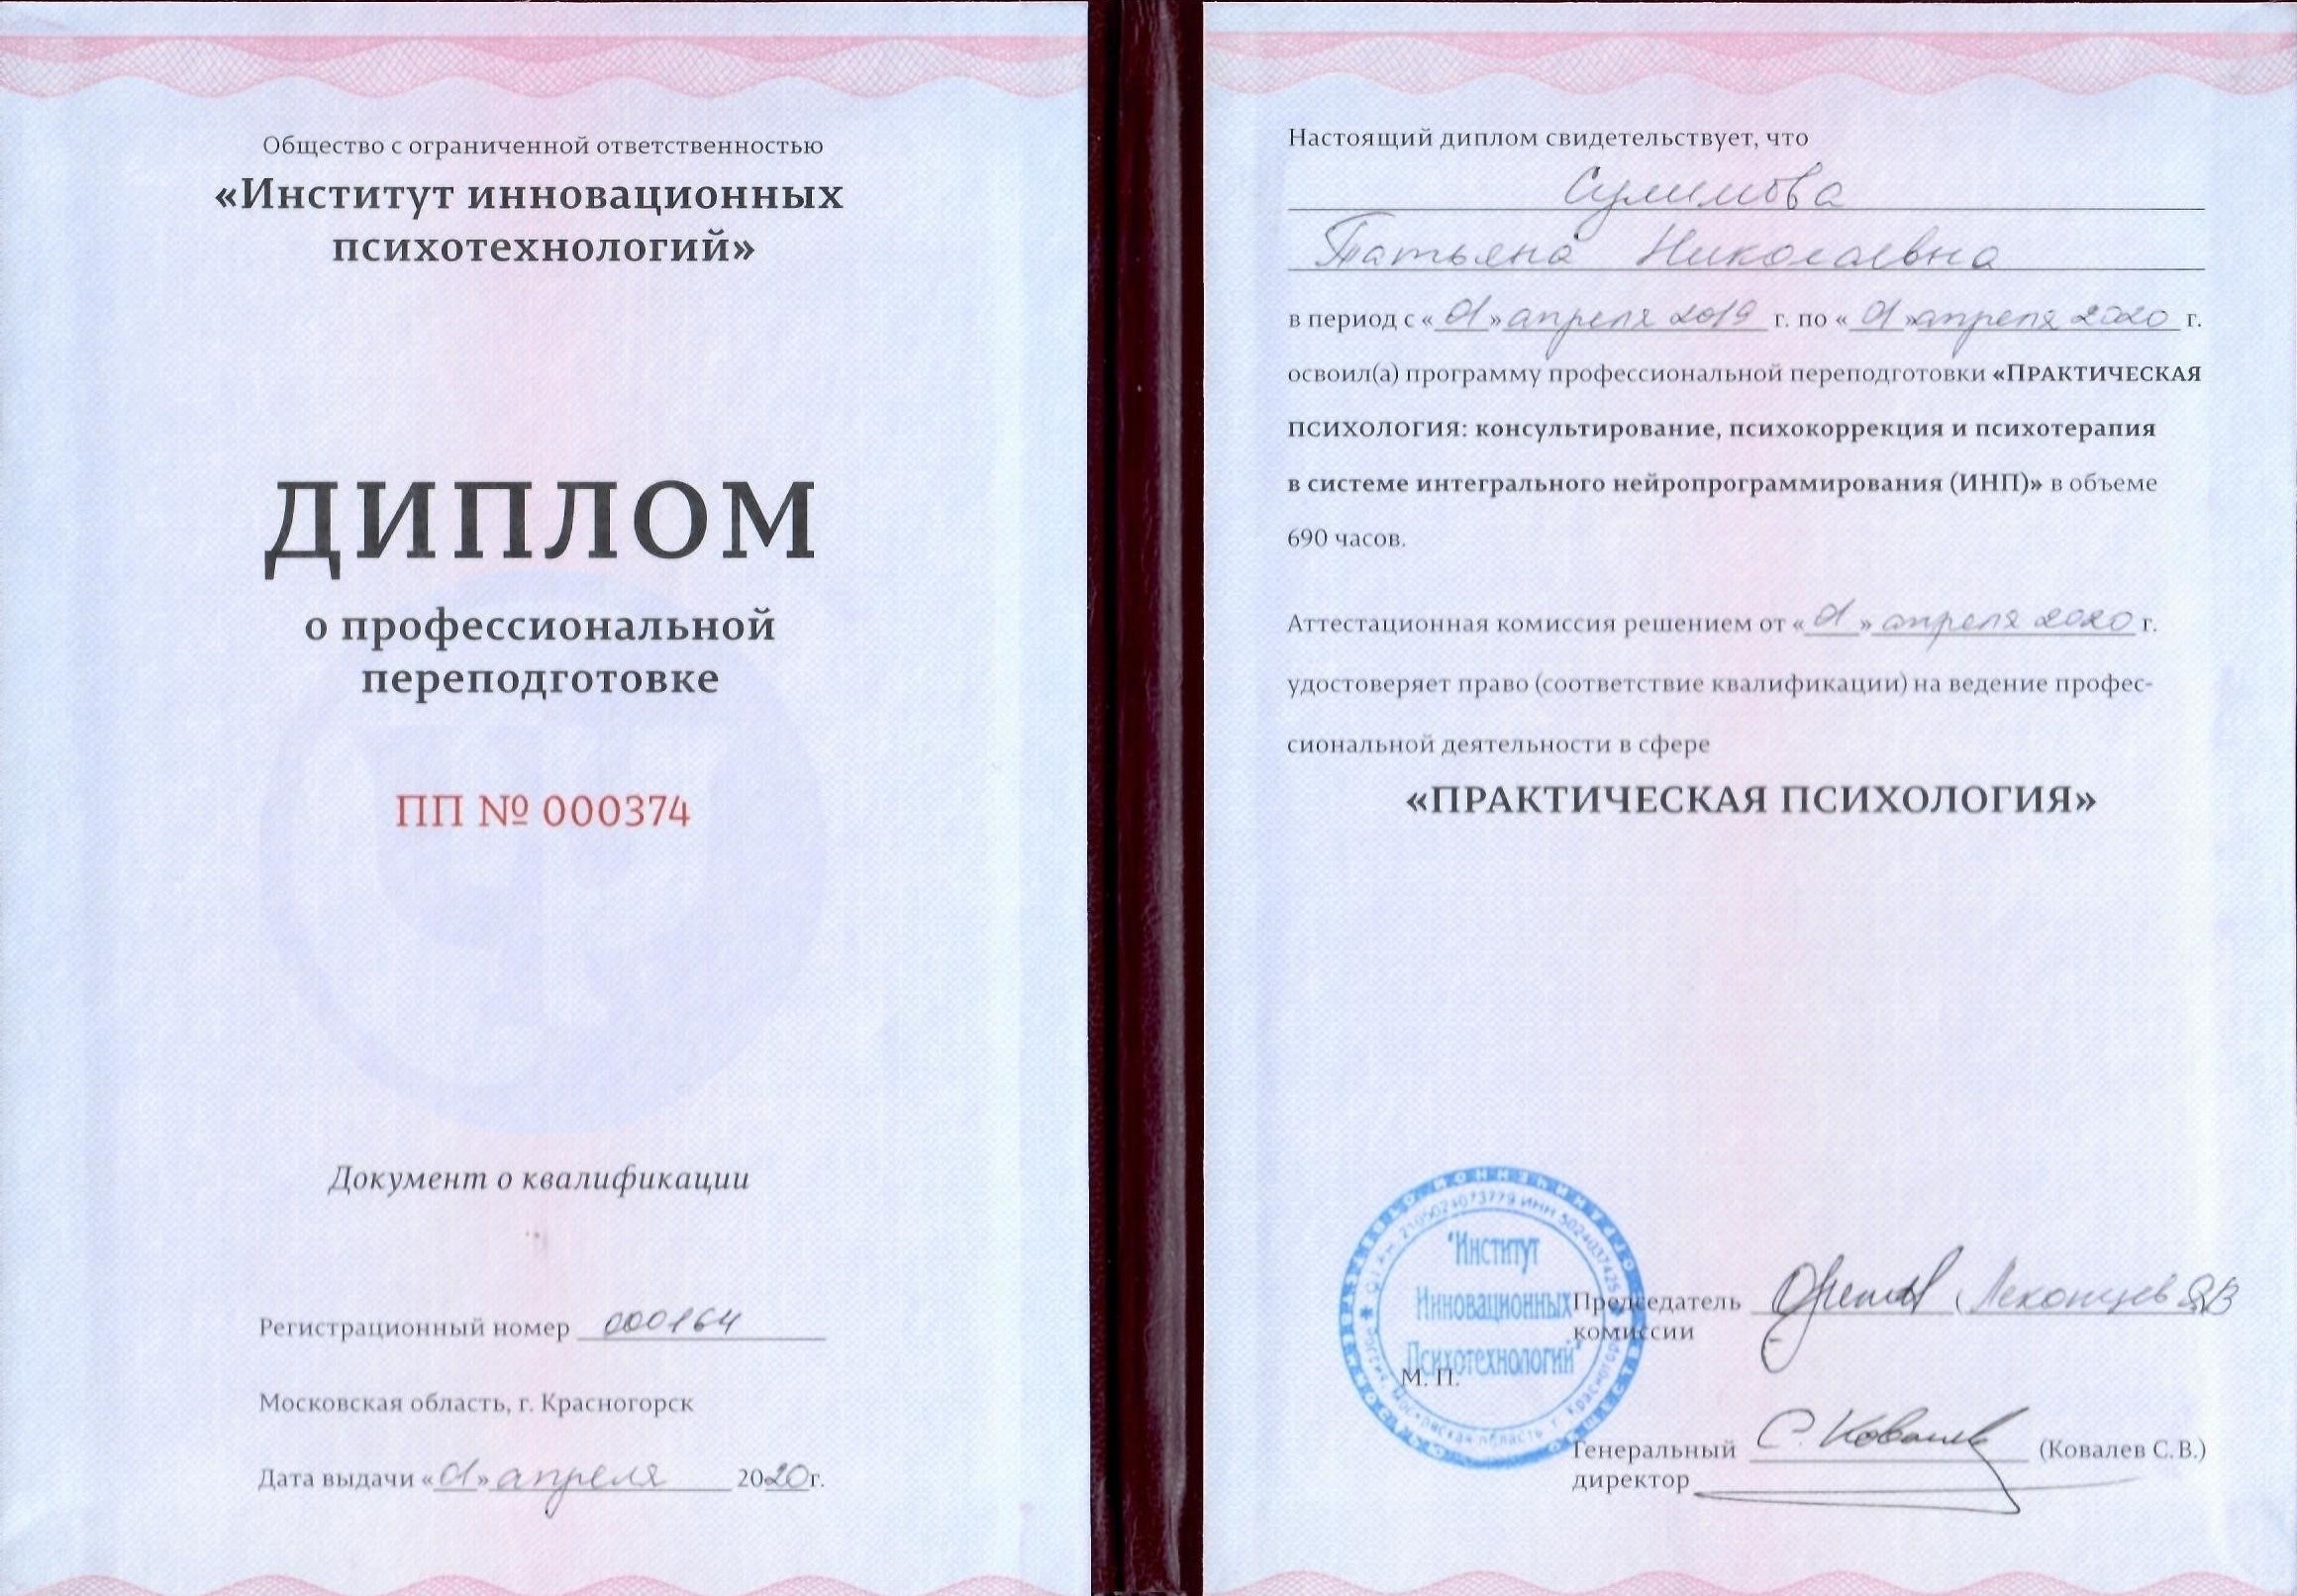 Общество с ограниченной ответственностью
«Институт инновационных
психотехнологий»
ДИПЛОМ
о профессиональной
переподготовке
ПП № 000374
Документ о квалификации
Регистрационный номер 000164
Московская область, г. Красногорск
Дата выдачи «01» апреля 2020г.
Настоящий диплом свидетельствует, что
Сулимова
Татьяна Николаевна
в период с «01» апреля 2019 г. по «01» апреля 2020 г.
освоил(а) программу профессиональной переподготовки «ПРАКТИЧЕСКАЯ
ПСИХОЛОГИЯ: консультирование, психокоррекция и психотерапия
в системе интегрального нейропрограммирования (ИНП)» в объеме
690 часов.
Аттестационная комиссия решением от «01» апреля 2020 г.
удостоверяет право (соответствие квалификации) на ведение профес-
сиональной деятельности в сфере
«ПРАКТИЧЕСКАЯ ПСИХОЛОГИЯ»
"Институт
Инновационных
Психотехнологий"
М. П.
Председатель
комиссии
Генеральный С. Ковалев (Ковалев С. В.)
директор